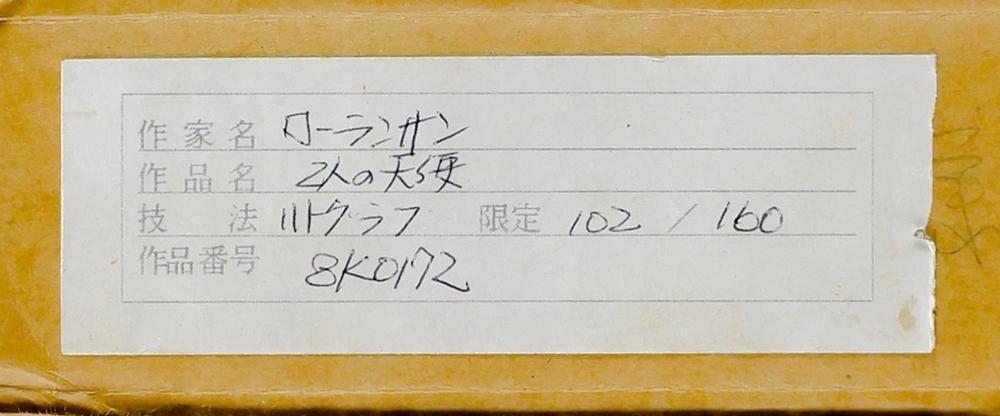 作家名 ローランサン
作品名 2人の天使
技法 リトグラフ 限定 102 / 160
作品番号 8K0172